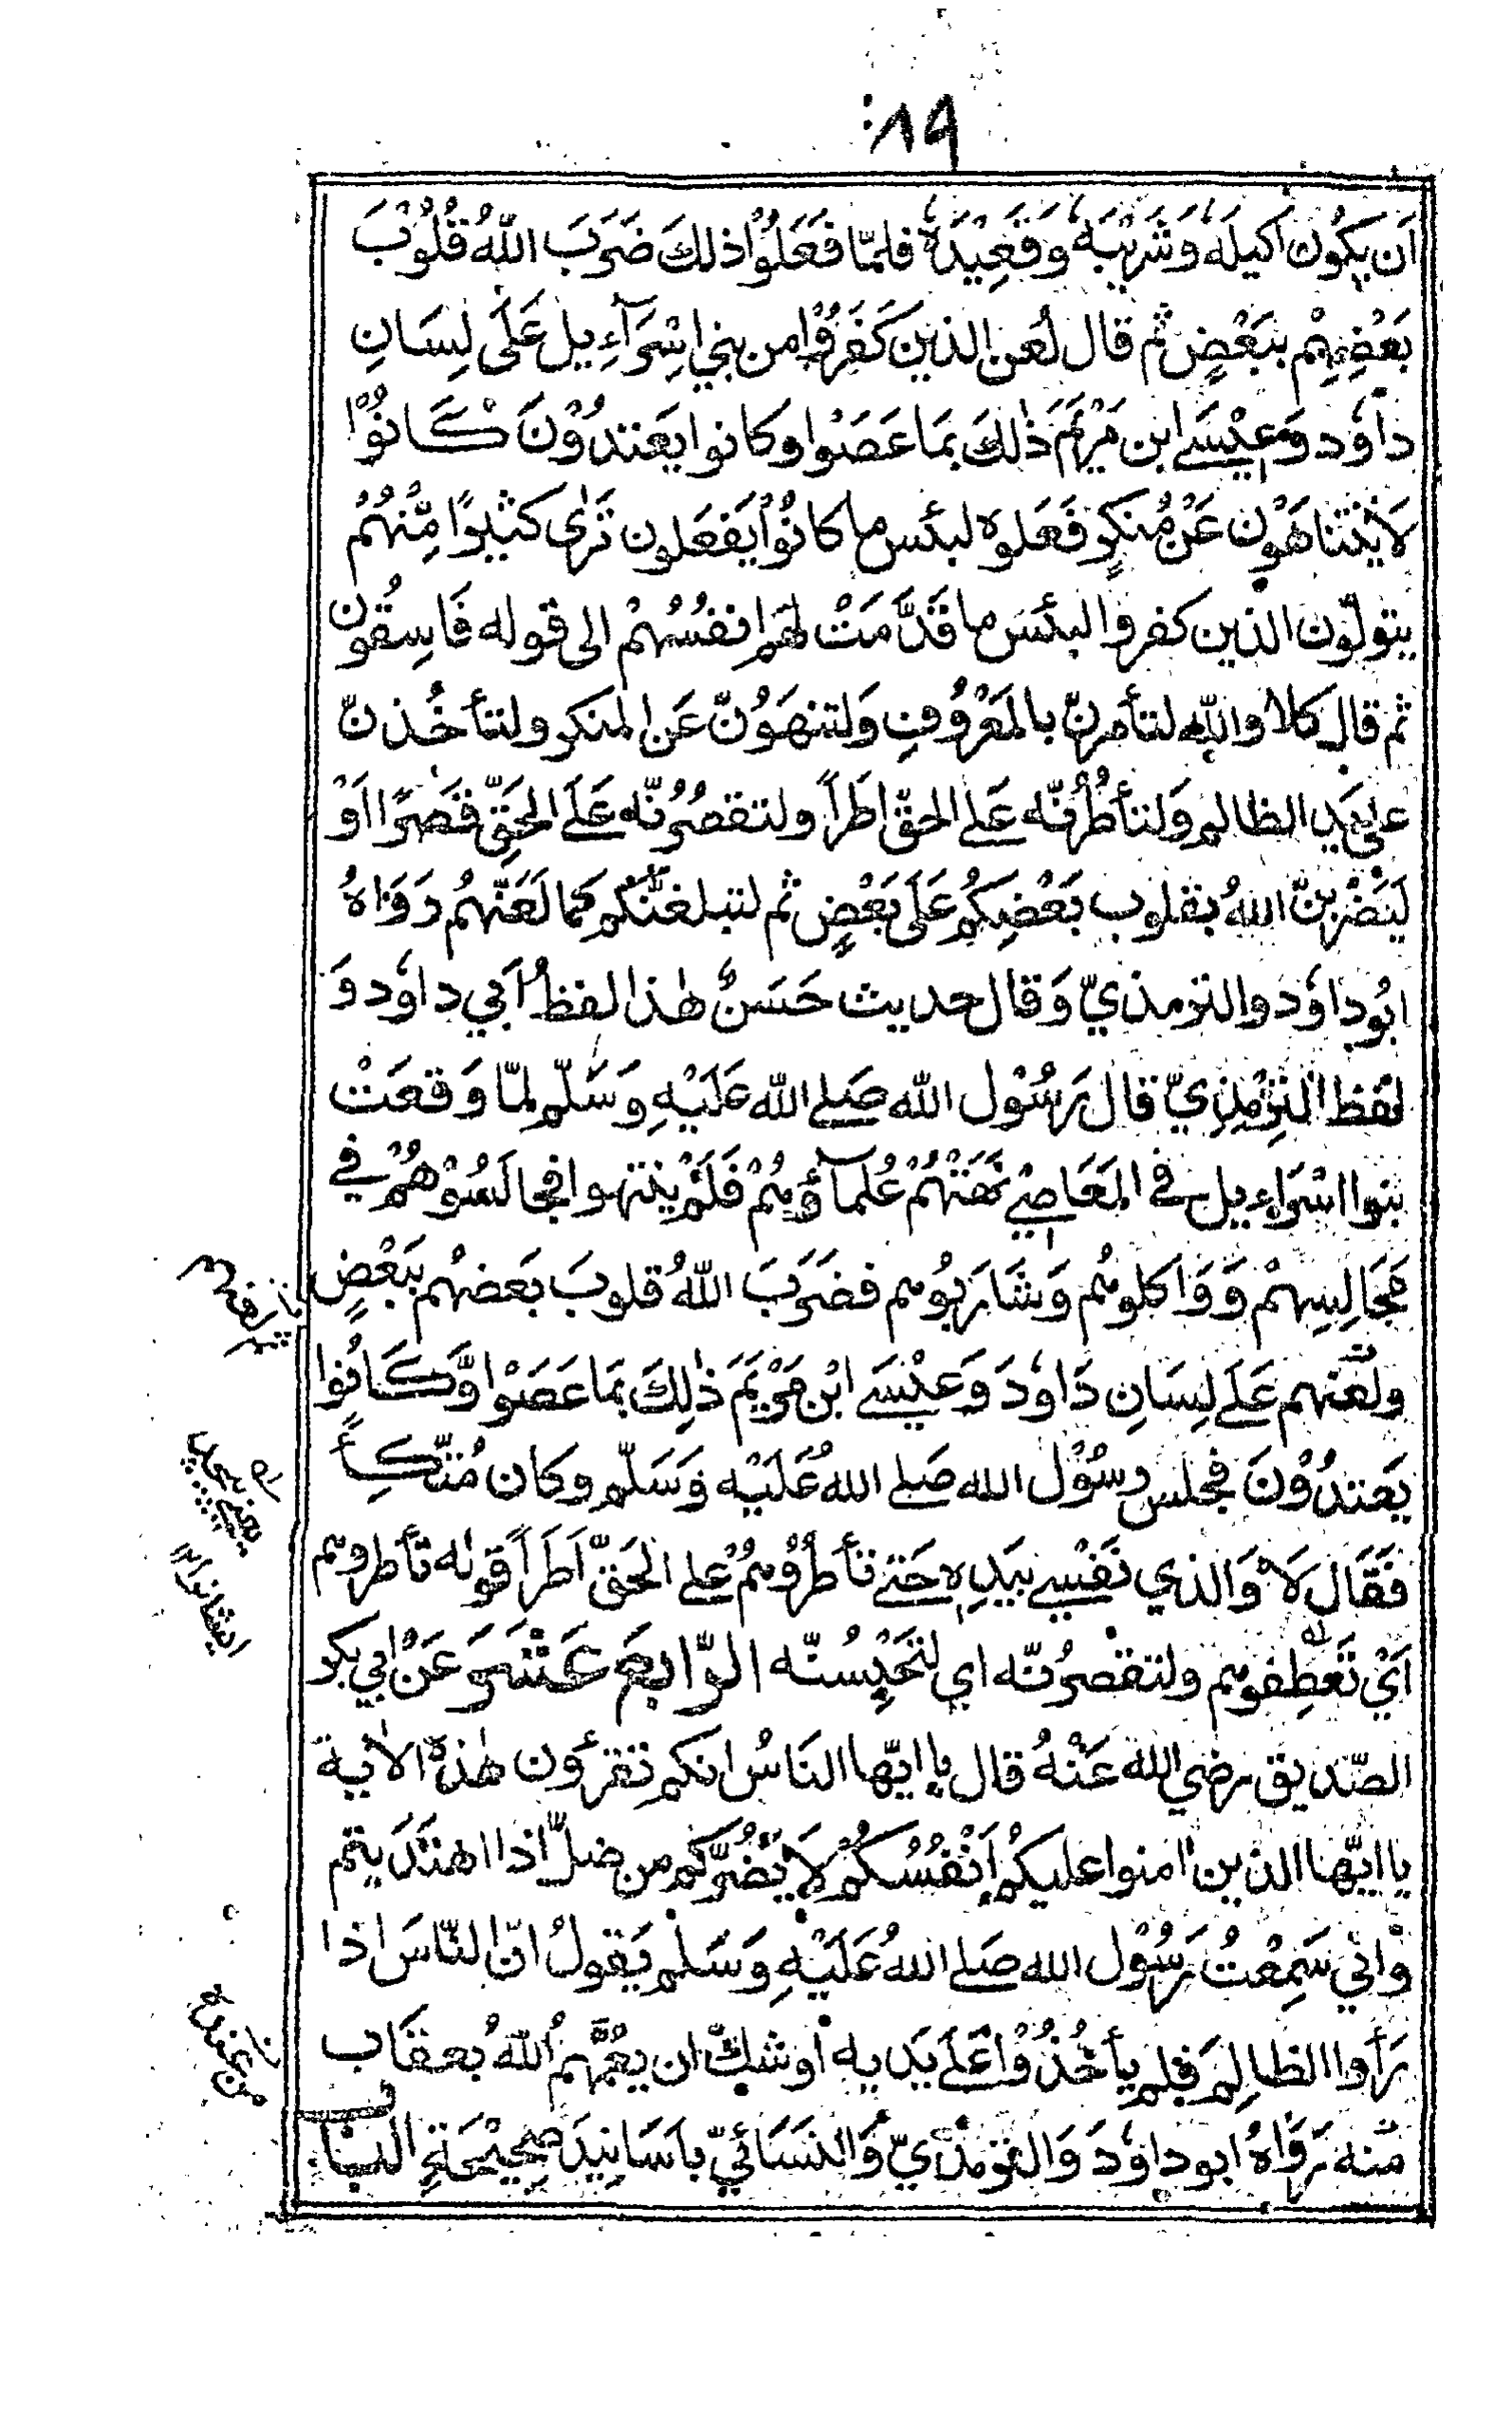 ١٩:
اَن يكُون اكيلَهٗ وَشَرِيْبَهٗ وَقَعِيْدَهٗ فلمّا فَعَلُوْا ذلكَ ضَرَبَ اللّٰهُ قُلُوْبَ
بَعْضِهِمْ ببَعْضٍ ثم قال لُعن الذين كَفَرُوْا من بني اِسْرَآءِيل عَلَى لِسَانِ
داوٗد وَعِيْسَے ابن مَرْيَمَ ذٰلِكَ بمَا عَصَوْا وكانوا يَعْتدُوْنَ كَانُوْا
لَا يَتَناهَوْن عَنْ مُنكرٍ فَعَلوه لبئس ما كانُوْا يَفعَلون تَرٰى كثيرًا مِّنْهُمْ
يتولّون الذين كفروا لبئسَ ما قَدَّمَتْ لهم انفُسُهُمْ الى قوله فَاسِقُون
ثم قال كلا والله لتأمرنّ بالمَعْرُوْفِ وَلتنهَوُنّ عَن المنكر ولتأخُذنّ
على يَدِ الظالم وَلتأطُرُنّه عَلے الحقّ اطَراً ولتقصُرُنّه عَلَے الحَقِّ قَصَرًا اَوْ
لَيَضْرِبنّ اللهُ بقلوب بَعْضِكُم عَلَى بَعْضٍ ثم لتبلغنّكم كما لَعَنَهُم رَوَاهُ
ابُو داوٗد والترمذيّ وَقال حديث حَسَنٌ هٰذا لفظُ اَبي داوٗد وَ
لفظ الترْمِذِيّ قال رَسُوْل الله صَلے الله عَلَيْهِ وَسَلّم لمّا وَقعَتْ
بنوا اسْرَاءيل في المَعَاصِيْ نَهَتْهُمْ عُلمآؤهُمْ فَلَمْ ينتهوا فجالَسُوْهُمْ في
مَجَالِسِهمْ وَوَاكلوهُم وَشَارَبُوهم فضَرَبَ اللّٰهُ قلوبَ بَعضهُم ببَعْضٍ
ولعَنهم عَلَے لِسَانِ دَاوٗدَ وَعِيْسَے ابْن مَرْيَمَ ذٰلِكَ بمَا عَصَوْا وَّكَانُوا
يَعتدُوْنَ فجلس رسُوْل الله صَلے اللهُ عَلَيْه وَسَلّم وكان مُتّكِأً
فَقَال لَا وَالذي نَفْسِے بيَدِهٖ حَتّے تأطرُوْهُمْ عَلے الحَقّ اَطَراً قوله تأطروهم
اَيْ تَعطِفوهم ولتقصُرُنّه اي لتَحَبِسُنّه الرّابعَ عَشَرَ عَنْ ابي بكر
الصّديق رضي الله عَنْهُ قال يا ايّها النَاسُ انكم تقرؤن هٰذه الاٰية
يا ايّها الذين اٰمنوا عليكُم اَنْفُسُكُمْ لَا يَضُرُّكم من ضلّ اذا اهتَدَيتم
وْانّي سَمِعْتُ رَسُوْل الله صَلے اللهُ عَلَيْهِ وَسَلم يَقولُ انّ النّاسَ اذا
رَأوا الظالِمَ فلم يأخُذُوْا عَلَے يَديه اوشكّ ان يعُمَّهمُ اللّٰهُ بعقَاب
منه رَوَاهُ ابو داوٗدَ وَالترمذيّ وَالنسَائيّ باسَانيدَ صِحِيْحَةٍ الباب
من عنده